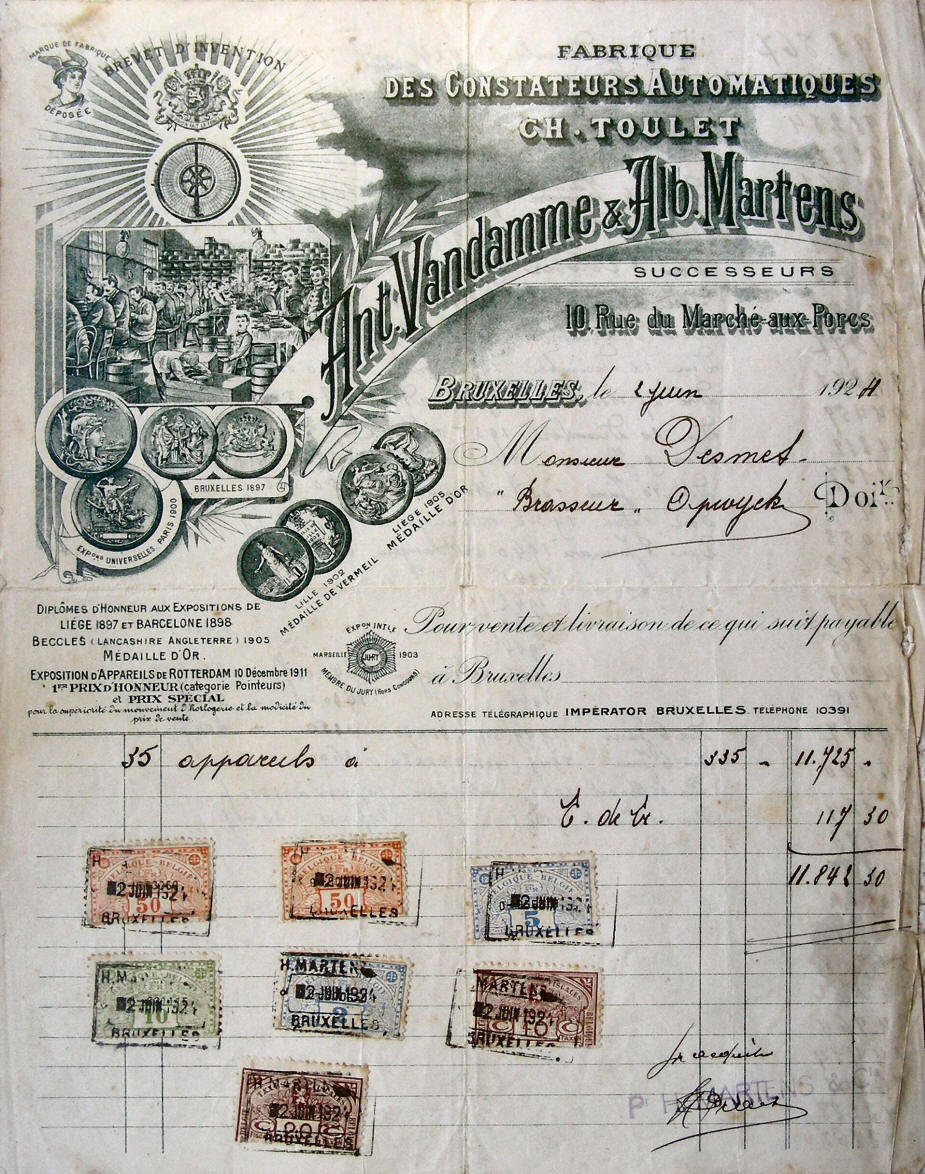 MARQUE DE FABRIQUE
DÉPOSÉE
BREVET D'INVENTION
FABRIQUE
DES CONSTATEURS AUTOMATIQUES
CH. TOULET
Ant. Vandamme & Alb. Martens
SUCCESSEURS
10, Rue du Marché-aux-Porcs
BRUXELLES, le 2 juin 1924
Monsieur Desmet
"Brasseur" Opwyck Doit
BRUXELLES 1897
EXPONS UNIVERSELLES. PARIS 1900
LILLE 1902
MÉDAILLE DE VERMEIL
LIÈGE 1905
MÉDAILLE D'OR
DIPLÔMES D'HONNEUR AUX EXPOSITIONS DE
LIÈGE 1897 ET BARCELONE 1898
BECCLES (LANCASHIRE ANGLETERRE) 1905
MÉDAILLE D'OR.
EXPOSITION D'APPAREILS DE ROTTERDAM 10 Décembre 1911
1ER PRIX D'HONNEUR (categorie Pointeurs)
et PRIX SPÉCIAL
pour la supériorité du mouvement d'horlogerie et la modicité du
prix de vente.
EXPON INTLE
MARSEILLE JURY 1903
MEMBRE DU JURY (HORS CONCOURS)
Pour vente et livraison de ce qui suit payable
à Bruxelles
ADRESSE TÉLÉGRAPHIQUE IMPÉRATOR BRUXELLES. TÉLÉPHONE 10391
35 appareils à 335 - 11.725 -
T. de Tr. 117 30
11.842 30
BELGIQUE-BELGIË
2 JUIN 1924
50
BRUXELLES
BELGIQUE-BELGIË
2 JUIN 1924
50
BRUXELLES
BELGIQUE-BELGIË
2 JUIN 1924
5
BRUXELLES
H. MARTENS
2 JUIN 1924
10
BRUXELLES
H. MARTENS
2 JUIN 1924
2
BRUXELLES
MARTENS
FISCALES
2 JUIN 1924
10
BRUXELLES
H. MARTENS
2 JUIN 1924
20
BRUXELLES
Pr acquit
Pr H. MARTENS & Cie